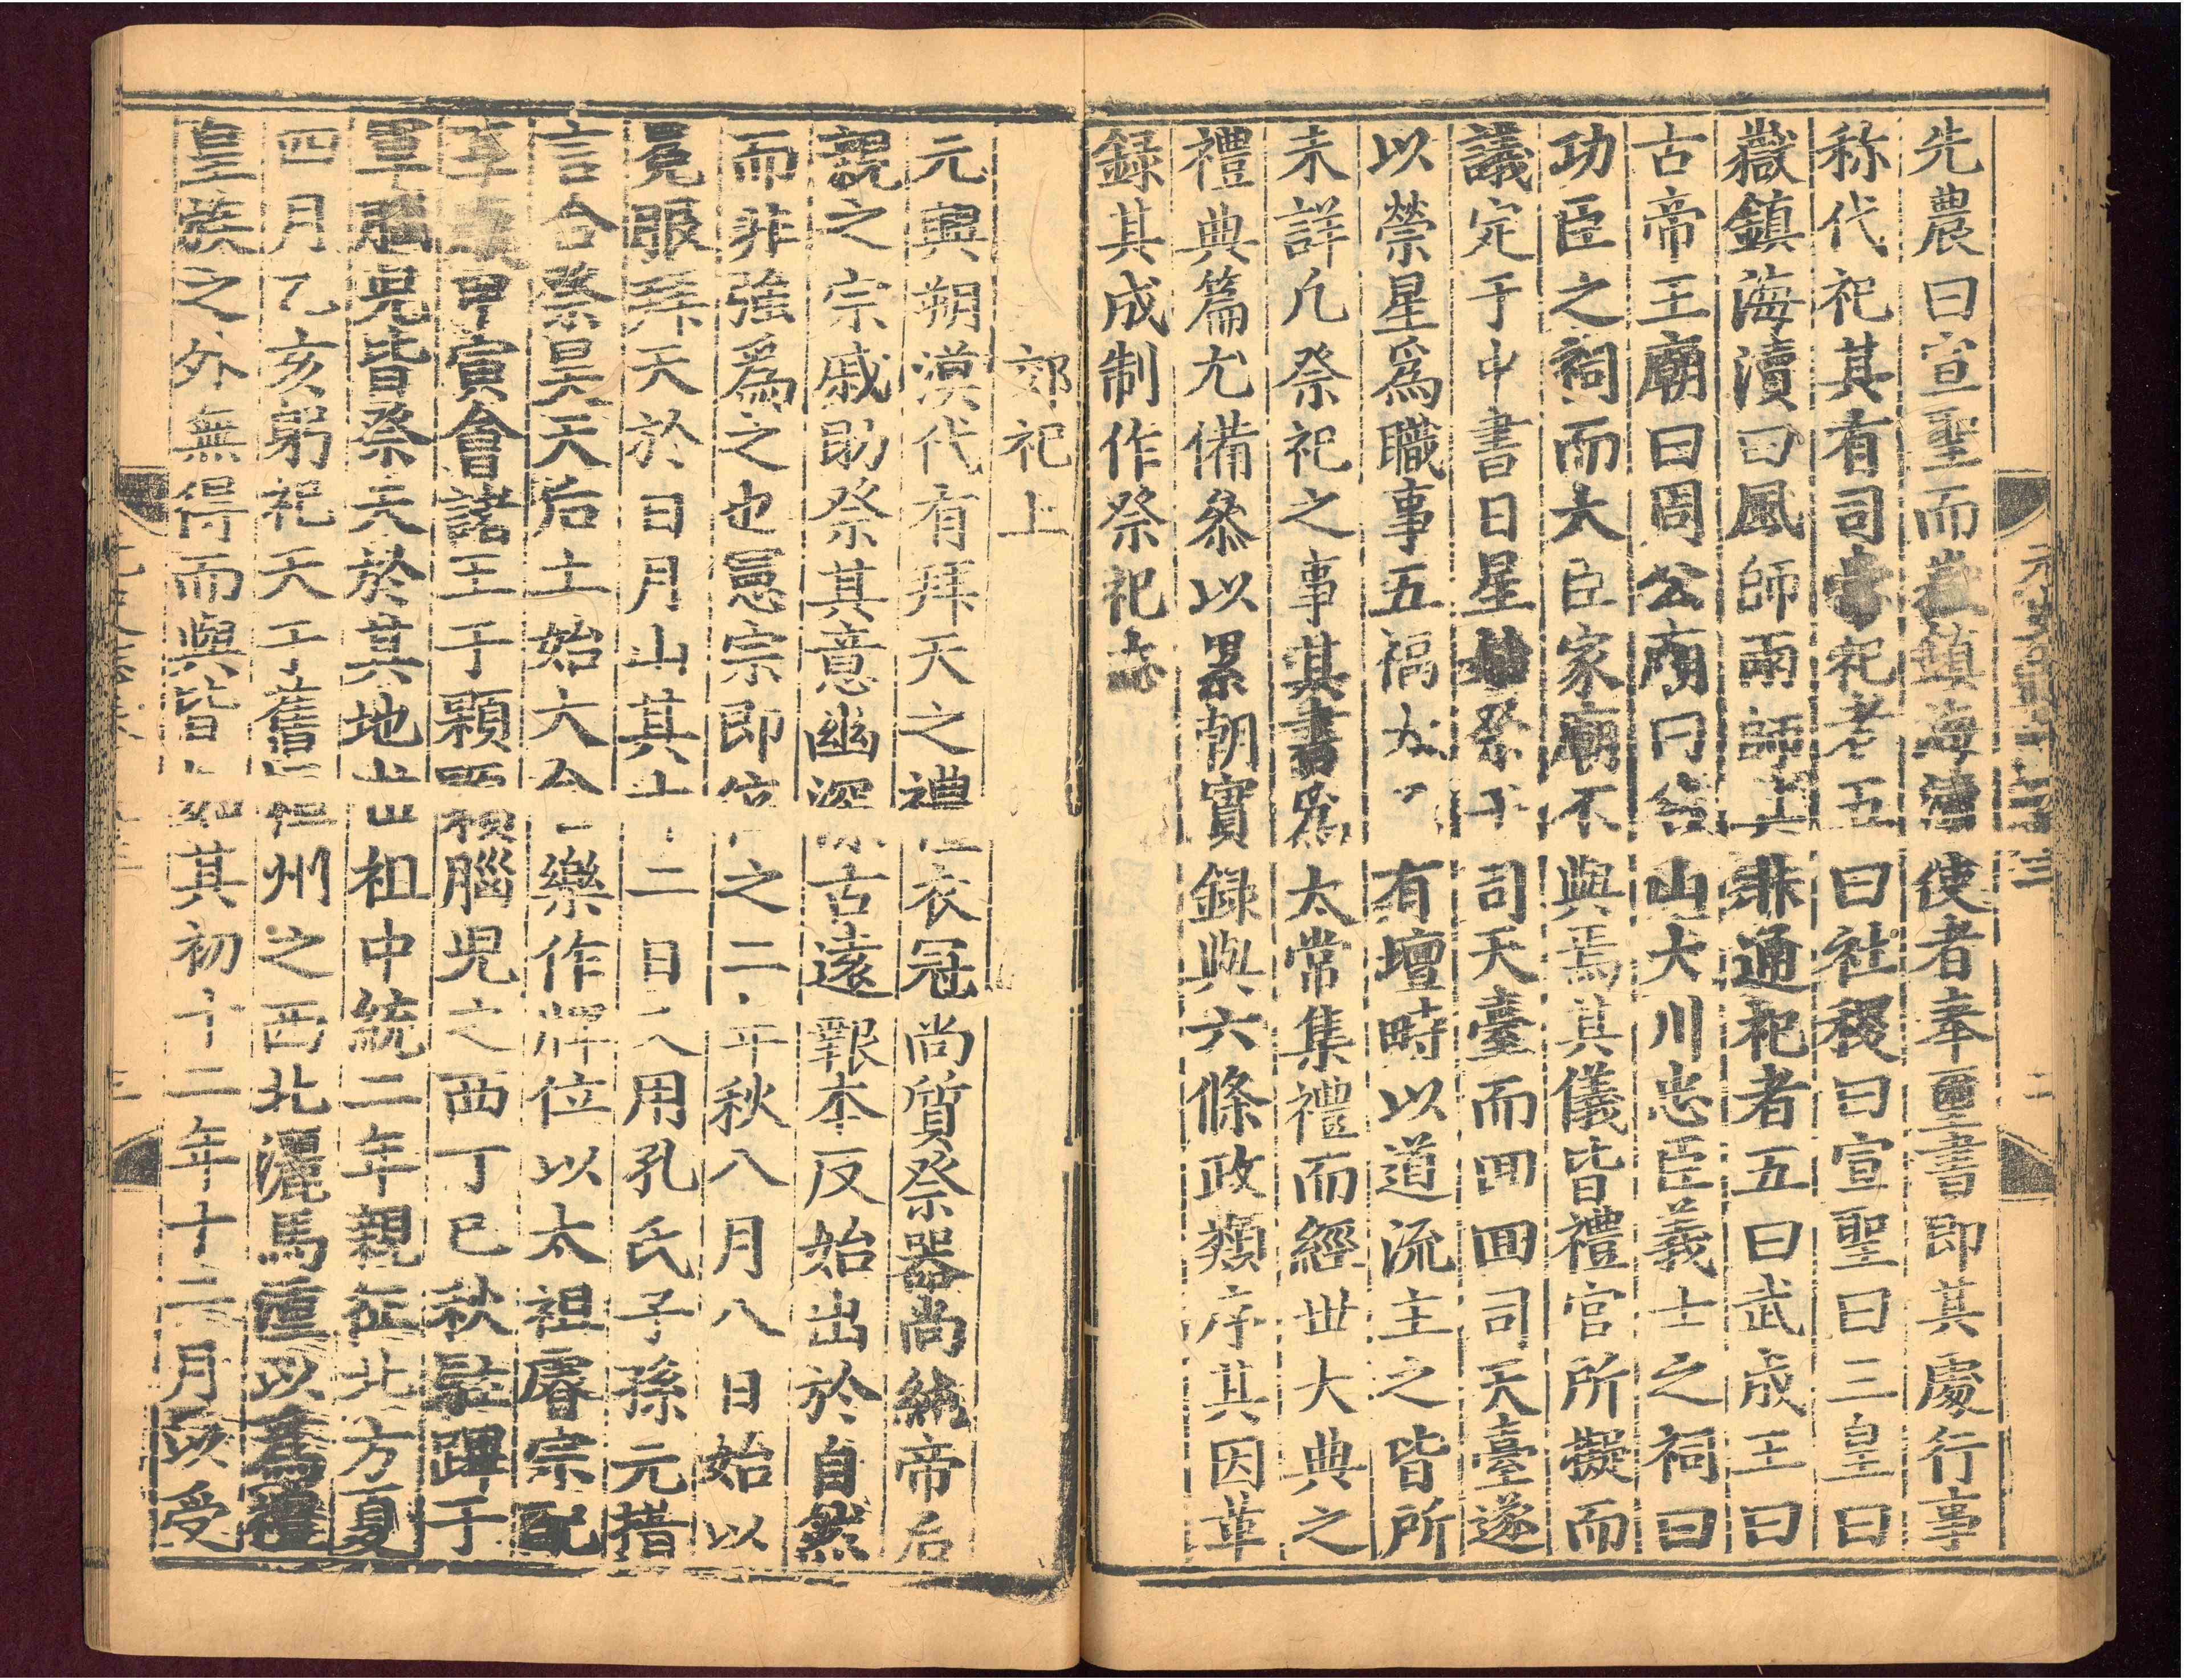 先農曰宣聖而嶽鎮海瀆使者奉璽書即其處行事
稱代祀其有司常祀者五曰社稷曰宣聖曰三皇曰
嶽鎮海瀆曰風師雨師其非通祀者五曰武成王曰
古帝王廟曰周公廟曰名山大川忠臣義士之祠曰
功臣之祠而大臣家廟不與焉其儀皆禮官所擬而
議定于中書日星始祭于司天臺而回回司天臺遂
以榮星爲職事五福太乙有壇畤以道流主之皆所
未詳凡祭祀之事其書爲太常集禮而經世大典之
禮典篇尤備叅以累朝實録與六條政類序其因革
録其成制作祭祀志
郊祀上
元興朔漠代有拜天之禮衣冠尚質祭器尚純帝后
親之宗戚助祭其意幽深古遠報本反始出於自然
而非強爲之也憲宗即位之二年秋八月八日始以
冕服拜天於日月山其十二日又用孔氏子孫元措
言合祭昊天后土始大合樂作牌位以太祖睿宗配
享歲甲寅會諸王于顆顆腦兒之西丁巳秋駐蹕于
軍腦兒皆祭天於其地世祖中統二年親征北方夏
四月乙亥躬祀天于舊桓州之西北灑馬湩以爲禮
皇族之外無得而與皆如其初十二年十二月以受